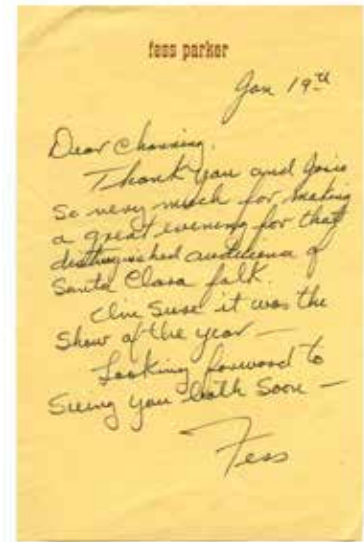 fess parker
Jan 19th
Dear Channing,
Thank you and
so very much for making
a great evening for that
distinguished audience of
Santa Clara folk.
sure it was the
show of the year —
Looking forward to
seeing you both soon —
Fess